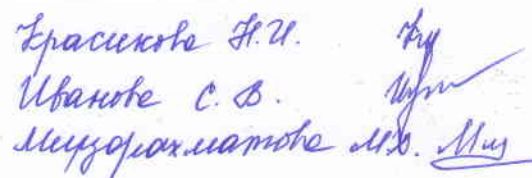 Красикова Н.И.
Иванова С.В.
Мирзорахматова М.О.